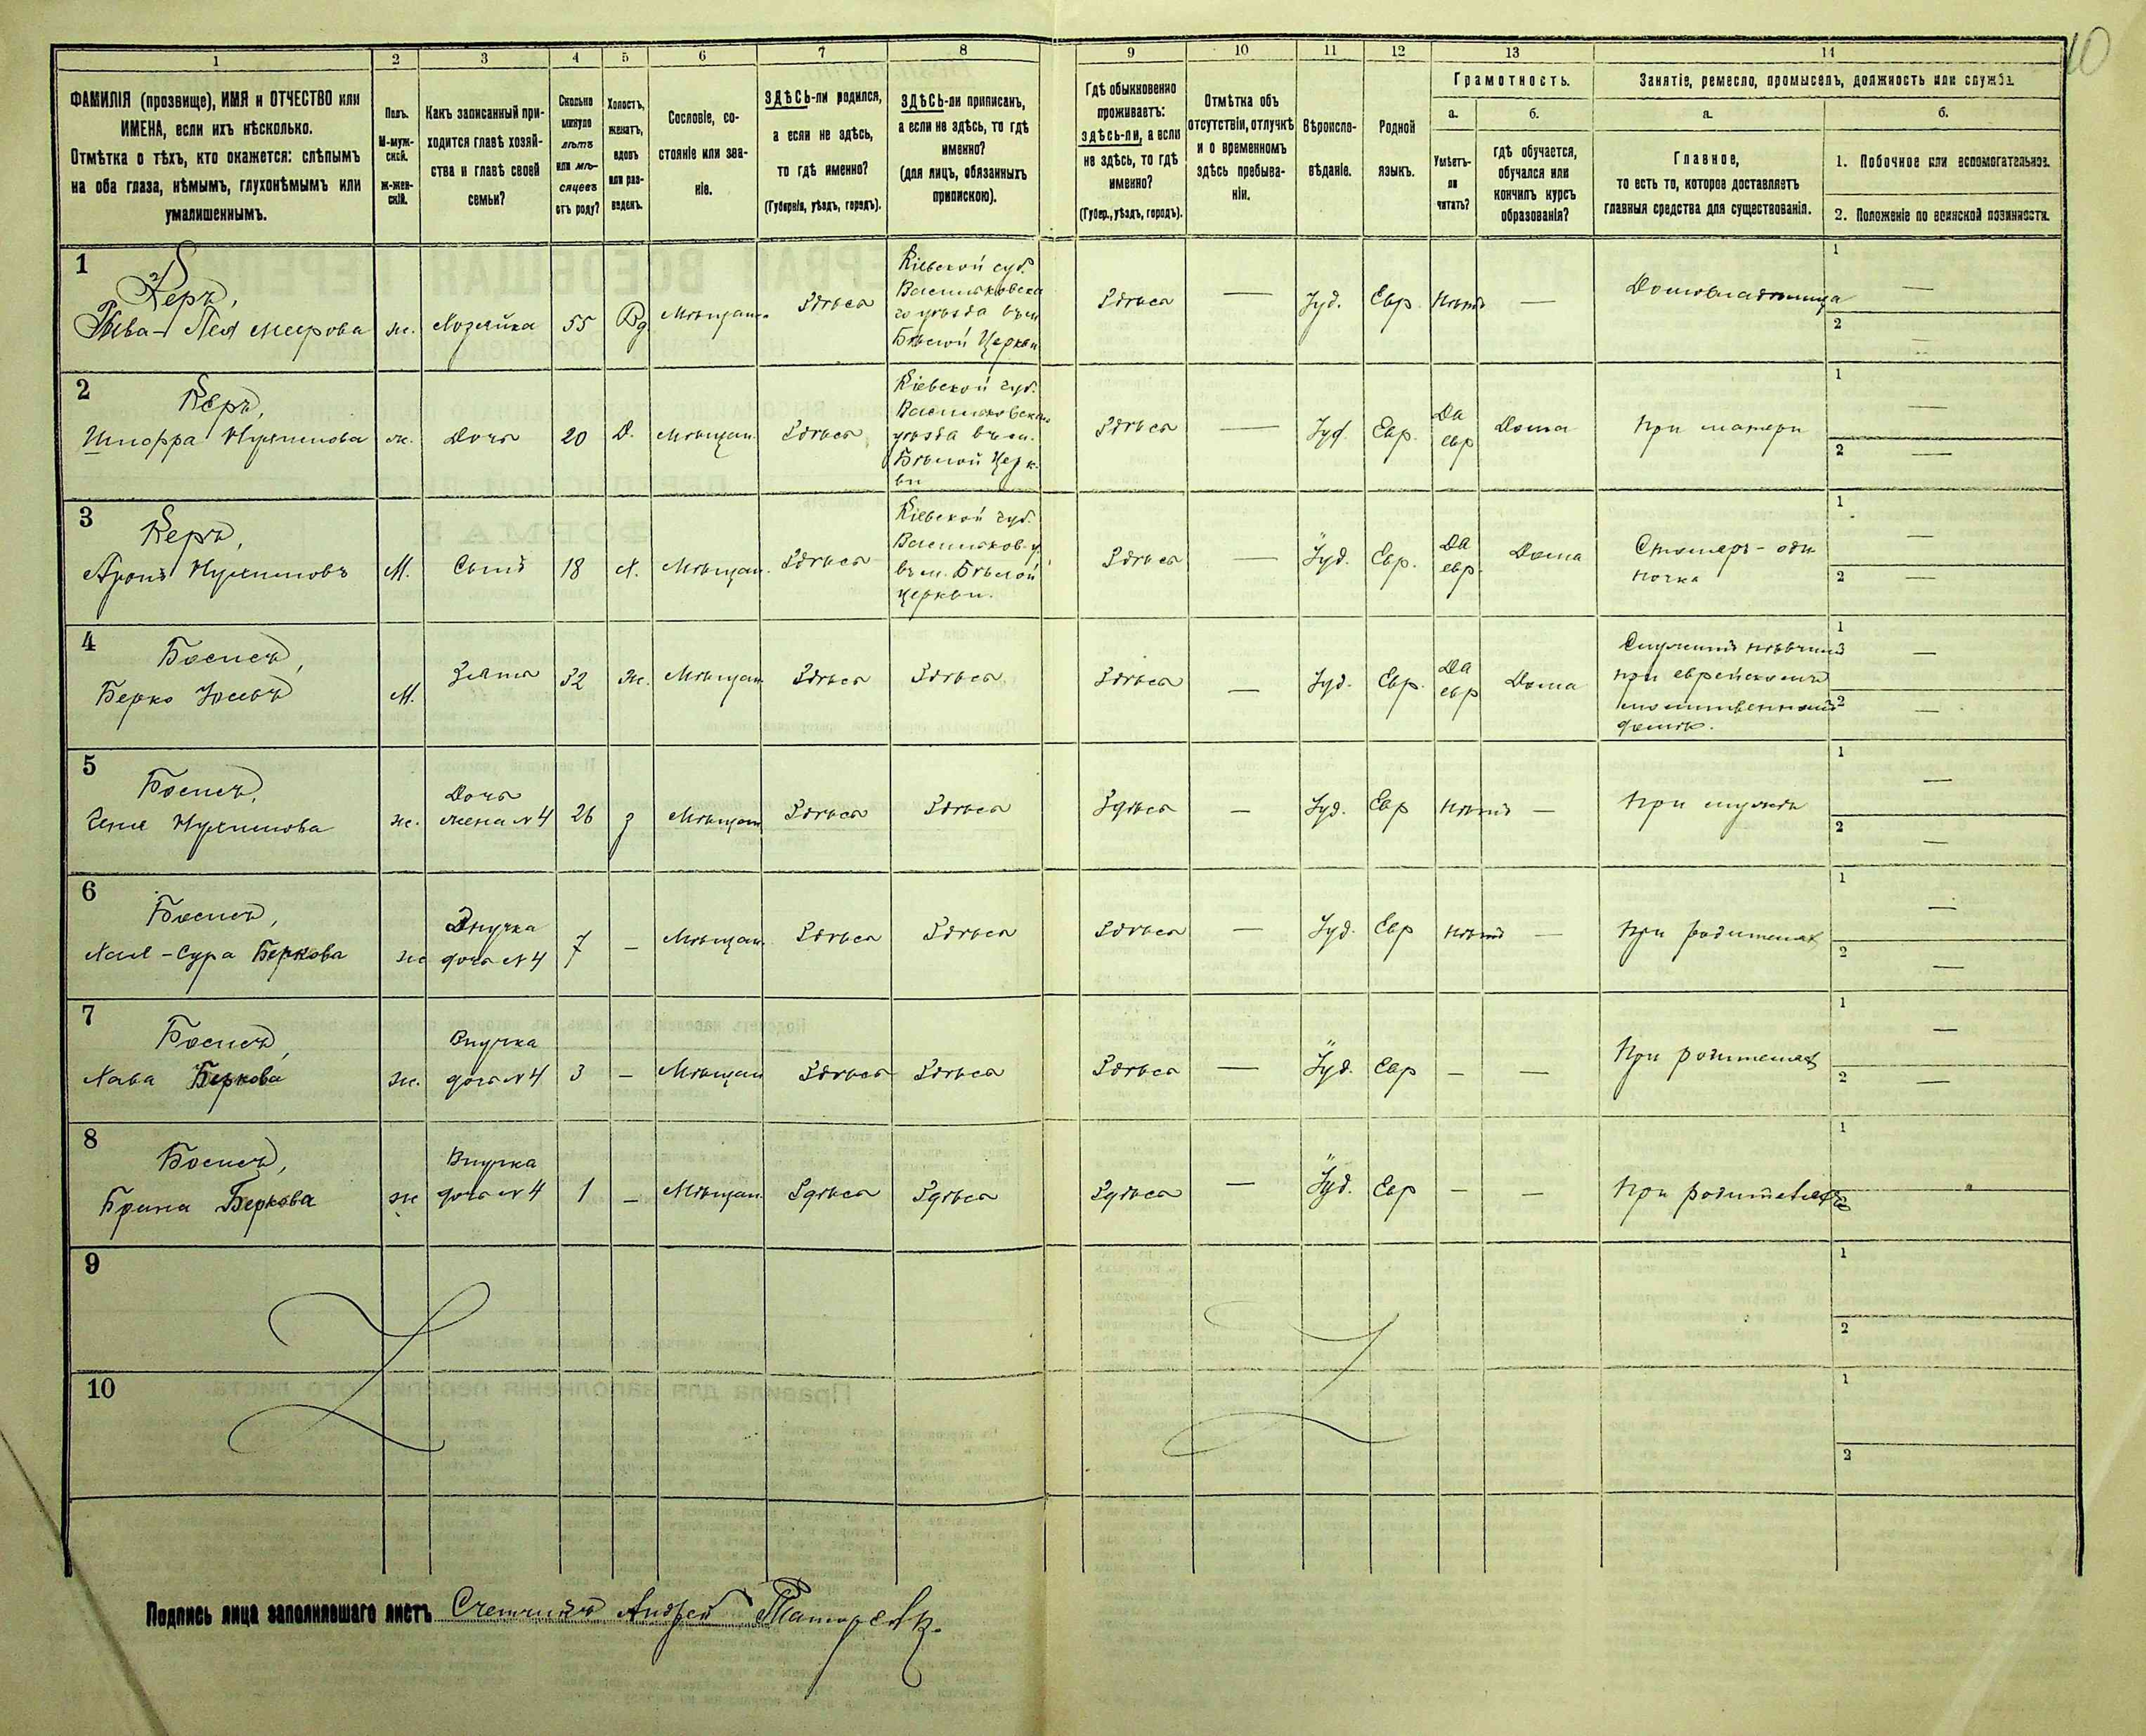 10
1 2 3 4 5 6 7 8 9 10 11 12 13 14
ФАМИЛІЯ (прозвище), ИМЯ и ОТЧЕСТВО или
ИМЕНА, если ихъ нѣсколько.
Отмѣтка о тѣхъ, кто окажется: слѣпымъ
на оба глаза, нѣмымъ, глухонѣмымъ или
умалишеннымъ.
Полъ.
М-муж-
ской.
Ж-жен-
скій.
Какъ записанный при-
ходится главѣ хозяй-
ства и главѣ своей
семьи?
Сколько
минуло
лѣтъ
или мѣ-
сяцевъ
отъ роду?
Холостъ,
женатъ,
вдовъ
или раз-
веденъ.
Сословіе, со-
стояніе или зва-
ніе.
ЗДѢСЬ-ли родился,
а если не здѣсь,
то гдѣ именно?
(Губернія, уѣздъ, городъ).
ЗДѢСЬ-ли приписанъ,
а если не здѣсь, то гдѣ
именно?
(для лицъ, обязанныхъ
припискою).
Гдѣ обыкновенно
проживаетъ:
здѣсь-ли, а если
не здѣсь, то гдѣ
именно?
(Губер., уѣздъ, городъ).
Отмѣтка объ
отсутствіи, отлучкѣ
и о временномъ
здѣсь пребыва-
ніи.
Вѣроиспо-
вѣданіе.
Родной
языкъ.
Грамотность.
а.
Умѣетъ-
ли
читать?
б.
гдѣ обучается,
обучался или
кончилъ курсъ
образованія?
Занятіе, ремесло, промыселъ, должность или служба.
а.
Главное,
то есть то, которое доставляетъ
главныя средства для существованія.
б.
1. Побочное или вспомогательное.
2. Положеніе по воинской повинности.
1
Керъ,
Рива-Лея Меерова
ж.
Хозяйка
55
Вд
Мѣщан.
Здѣсь
Кіевской губ.
Васильковска
го уѣзда въ м
Бѣлой Церкви
Здѣсь
—
Іуд.
Евр.
Нѣтъ
—
Домовладѣлица
1 —
2 —
2
Керъ,
Нухимова
ж.
Дочь
20
Д.
Мѣщан.
Здѣсь
Кіевской губ.
уѣзда въ м.
Бѣлой Церк-
ви
Здѣсь
—
Іуд.
Евр.
Да
евр
Дома
При матери
1 —
2 —
3
Керъ,
Аронъ Нухимовъ
М.
Сынъ
18
Х.
Мѣщан.
Здѣсь
Кіевской губ.
Васильков. у.
въ м. Бѣлой
Церкви.
Здѣсь
—
Іуд.
Евр.
Да
евр.
Дома
Столяръ-оди
ночка
1 —
2 —
4
Берко
М.
Зять
32
Ж.
Мѣщан
Здѣсь
Здѣсь
Здѣсь
—
Іуд.
Евр.
Да
евр
Дома
Служитъ пѣвчимъ
при еврейскомъ
молитвенномъ
домѣ.
1 —
2 —
5
Нухимова
ж.
Дочь
жена №4
26
З
Мѣщан
Здѣсь
Здѣсь
Здѣсь
—
Іуд.
Евр
Нѣтъ
—
При мужѣ
1 —
2 —
6
Хая-Сура Беркова
ж
Внучка
дочь №4
7
—
Мѣщан.
Здѣсь
Здѣсь
Здѣсь
—
Іуд.
Евр
Нѣтъ
—
При родителях
1 —
2 —
7
Хава Беркова
ж.
Внучка
дочь №4
3
—
Мѣщан
Здѣсь
Здѣсь
Здѣсь
—
Іуд.
Евр
—
—
При родителях
1 —
2 —
8
Брина Беркова
ж
Внучка
дочь №4
1
—
Мѣщан.
Здѣсь
Здѣсь
Здѣсь
—
Іуд.
Евр
—
—
При родителях
1
2
9
1
2
10
1
2
Подпись лица заполнившаго листъ Счетчикъ Андрей